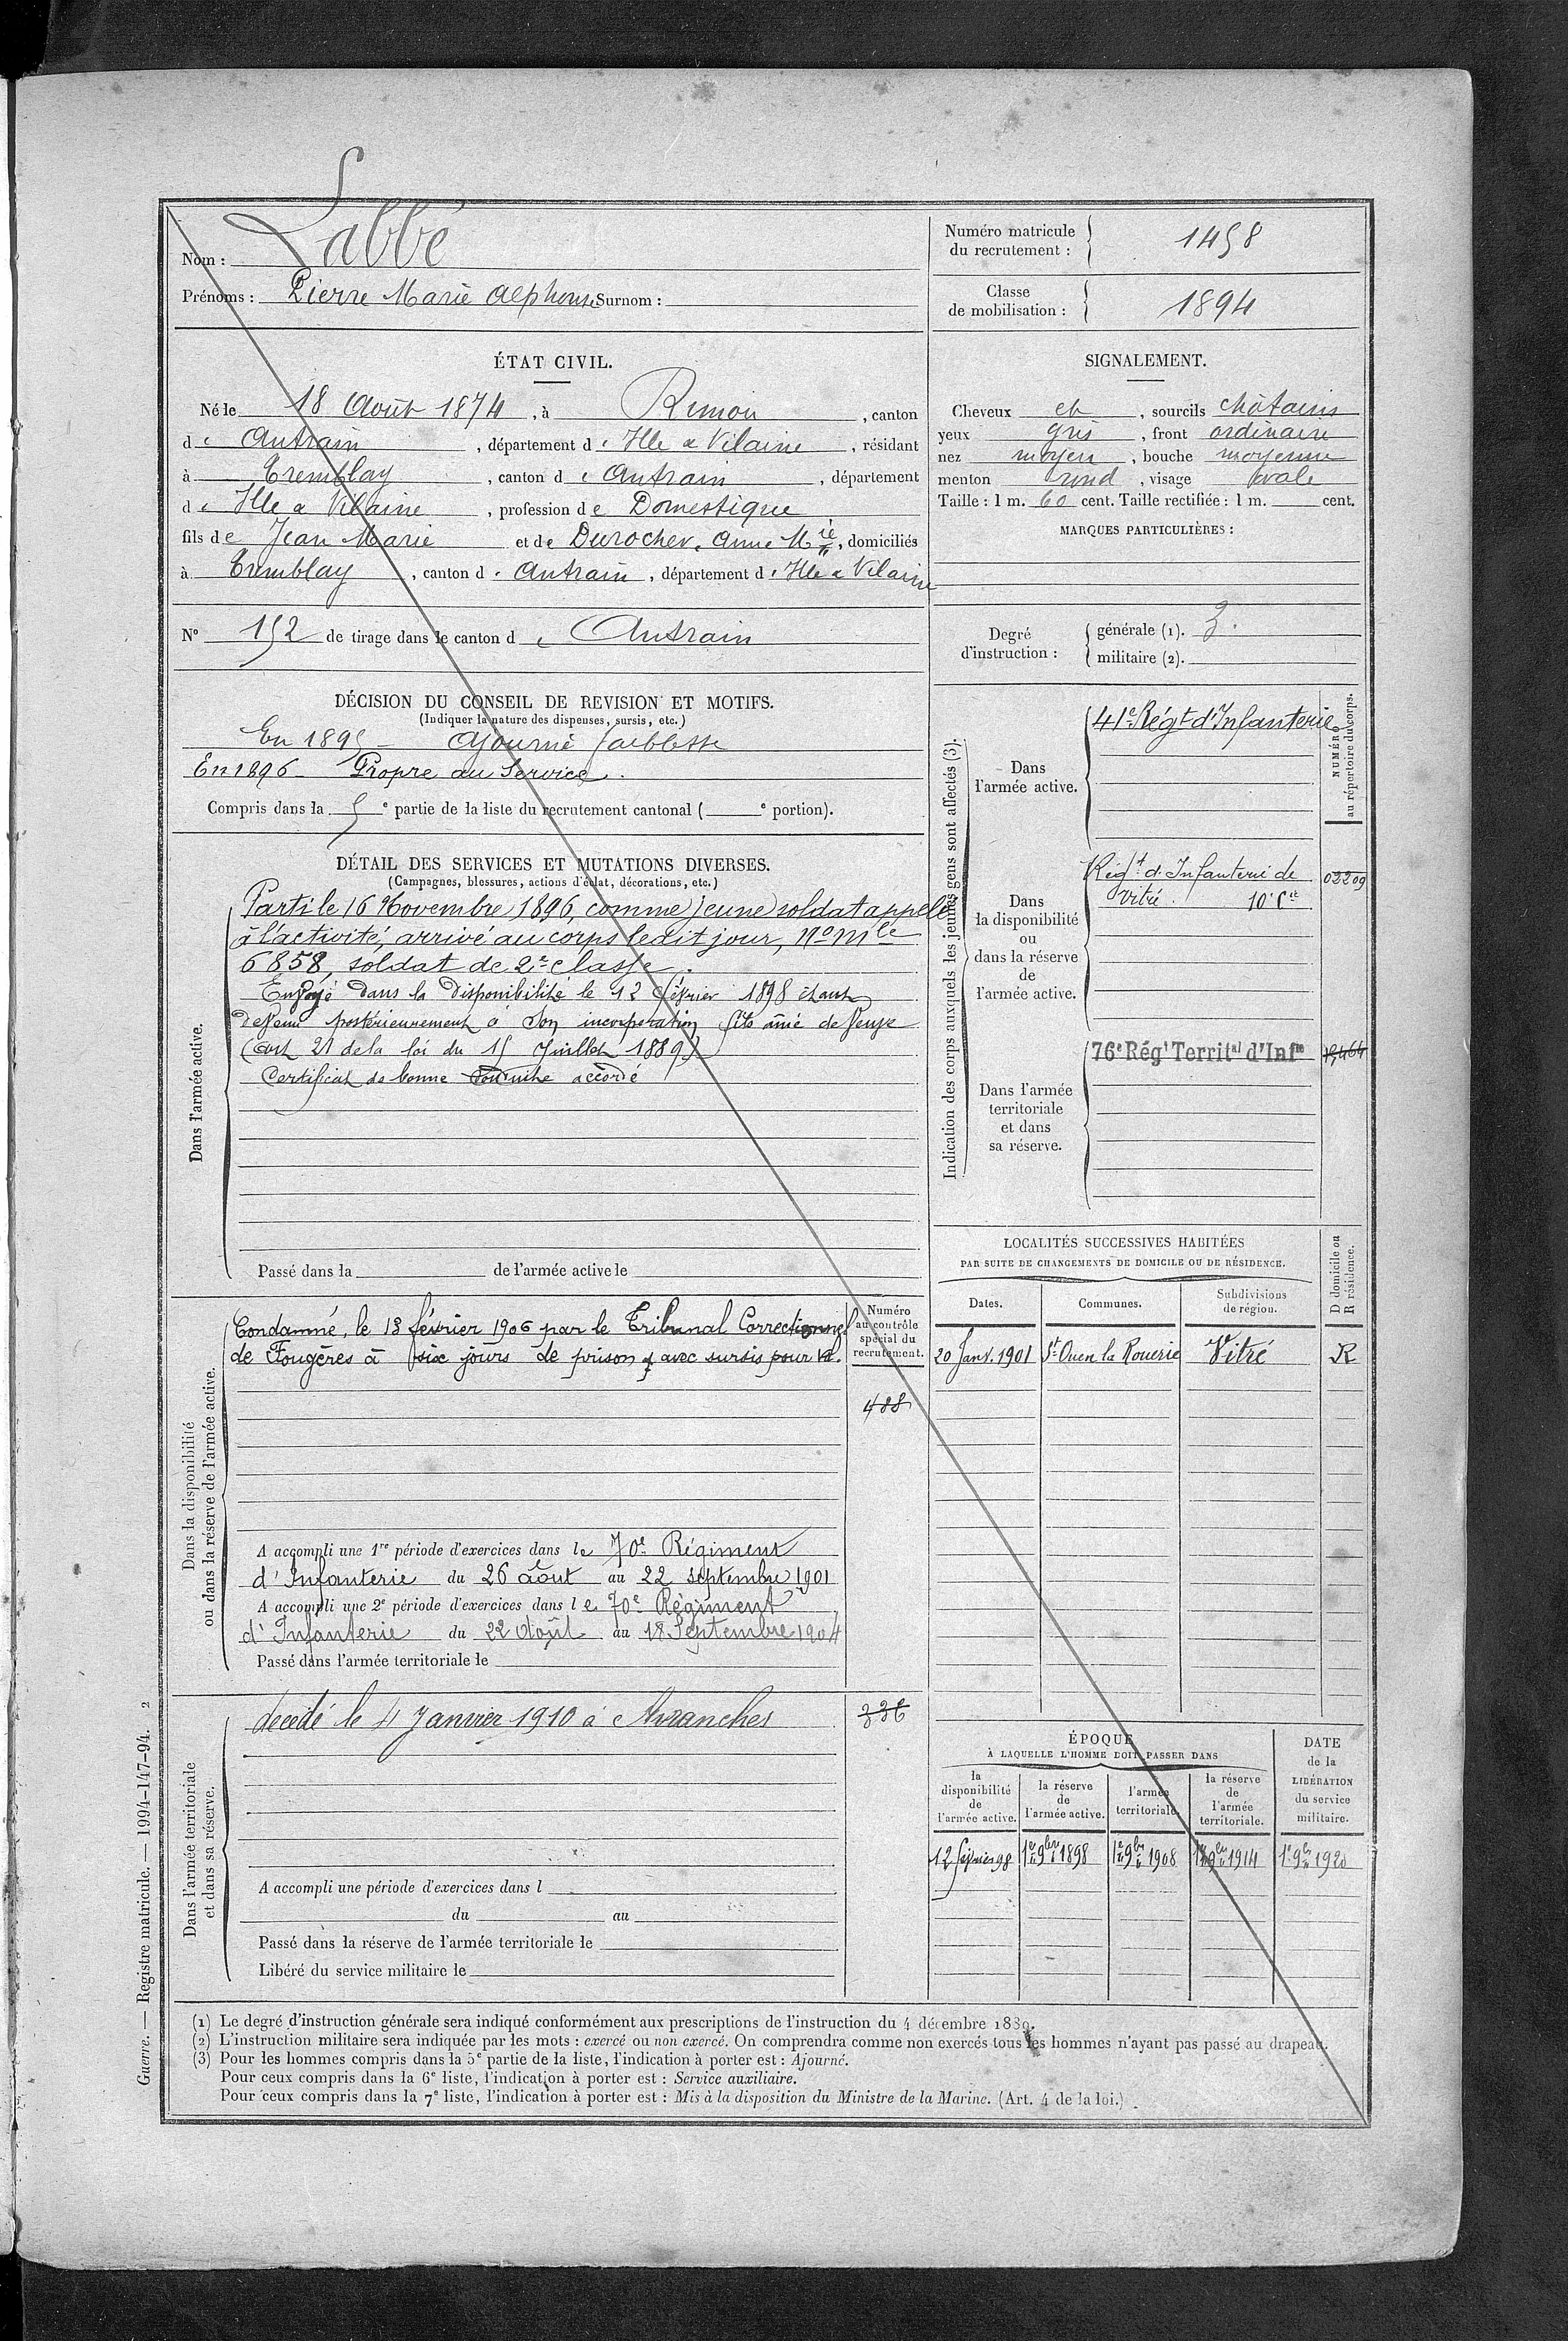 Nom : Labbé
Prénoms : Pierre Marie Alphonse Surnom :
Numéro matricule du recrutement : 1458
Classe de mobilisation : 1894
ÉTAT CIVIL.
Né le 18 Août 1874, à Rimou, canton
de Antrain, département d'Ille & Vilaine, résidant
à Tremblay, canton d'Antrain, département
d'Ille & Vilaine, profession de Domestique
fils de Jean Marie et de Durocher, Anne Mie, domiciliés
à Tremblay, canton d'Antrain, département d'Ille & Vilaine
No 152 de tirage dans le canton de Antrain
DÉCISION DU CONSEIL DE REVISION ET MOTIFS.
(Indiquer la nature des dispenses, sursis, etc.)
En 1895 - Ajourné faiblesse
En 1896 - Propre au Service.
Compris dans la 5e partie de la liste du recrutement cantonal ( e portion).
DÉTAIL DES SERVICES ET MUTATIONS DIVERSES.
(Campagnes, blessures, actions d'éclat, décorations, etc.)
Dans l'armée active.
Parti le 16 Novembre 1896, comme jeune soldat appelé
à l'activité, arrivé au corps ledit jour, No Mle
6858, soldat de 2e classe.
Envoyé dans la disponibilité le 12 février 1898 étant
devenu postérieurement à son incorporation fils aîné de veuve
(art 21 de la loi du 15 Juillet 1889)
Certificat de bonne conduite accordé
Passé dans la de l'armée active le
Dans la disponibilité
ou dans la réserve de l'armée active.
Condamné, le 13 février 1906 par le Tribunal Correctionnel
de Fougères à six jours de prison avec sursis pour
Numéro
au contrôle
spécial du
recrutement.
488
A accompli une 1re période d'exercices dans le 70e Régiment
d'Infanterie du 26 août au 22 septembre 1901
A accompli une 2e période d'exercices dans le 70e Régiment
d'Infanterie du 22 Août au 18 Septembre 1904
Passé dans l'armée territoriale le
Dans l'armée territoriale
et dans sa réserve.
décédé le 4 Janvier 1910 à Avranches
336
A accompli une période d'exercices dans l
du au
Passé dans la réserve de l'armée territoriale le
Libéré du service militaire le
SIGNALEMENT.
Cheveux et, sourcils châtains
yeux gris, front ordinaire
nez moyen, bouche moyenne
menton rond, visage ovale
Taille : 1 m. 60 cent. Taille rectifiée : 1 m. cent.
MARQUES PARTICULIÈRES :
Degré d'instruction :
générale (1). 3.
militaire (2).
Indication des corps auxquels les jeunes gens sont affectés (3).
NUMÉRO
au répertoire du corps.
Dans
l'armée active.
41e Régt d'Infanterie
Dans
la disponibilité
ou
dans la réserve
de
l'armée active.
Régt d'Infanterie de
Vitré. 10e Cie
02209
Dans l'armée
territoriale
et dans
sa réserve.
76e Régt Territal d'Infie
LOCALITÉS SUCCESSIVES HABITÉES
PAR SUITE DE CHANGEMENTS DE DOMICILE OU DE RÉSIDENCE.
Dates. Communes. Subdivisions de région. D domicile ou R résidence.
20 Janv. 1901 St Ouen la Rouerie Vitré R
ÉPOQUE
À LAQUELLE L'HOMME DOIT PASSER DANS
la disponibilité de l'armée active.
la réserve de l'armée active.
l'armée territoriale.
la réserve de l'armée territoriale.
DATE de la LIBÉRATION du service militaire.
12 février 98 1er 9bre 1898 1er 9bre 1908 1er 9bre 1914 1er 9bre 1920
(1) Le degré d'instruction générale sera indiqué conformément aux prescriptions de l'instruction du 4 décembre 1889.
(2) L'instruction militaire sera indiquée par les mots : exercé ou non exercé. On comprendra comme non exercés tous les hommes n'ayant pas passé au drapeau.
(3) Pour les hommes compris dans la 5e partie de la liste, l'indication à porter est : Ajourné.
Pour ceux compris dans la 6e liste, l'indication à porter est : Service auxiliaire.
Pour ceux compris dans la 7e liste, l'indication à porter est : Mis à la disposition du Ministre de la Marine. (Art. 4 de la loi.)
Guerre. — Registre matricule. — 1994-147-94. 2